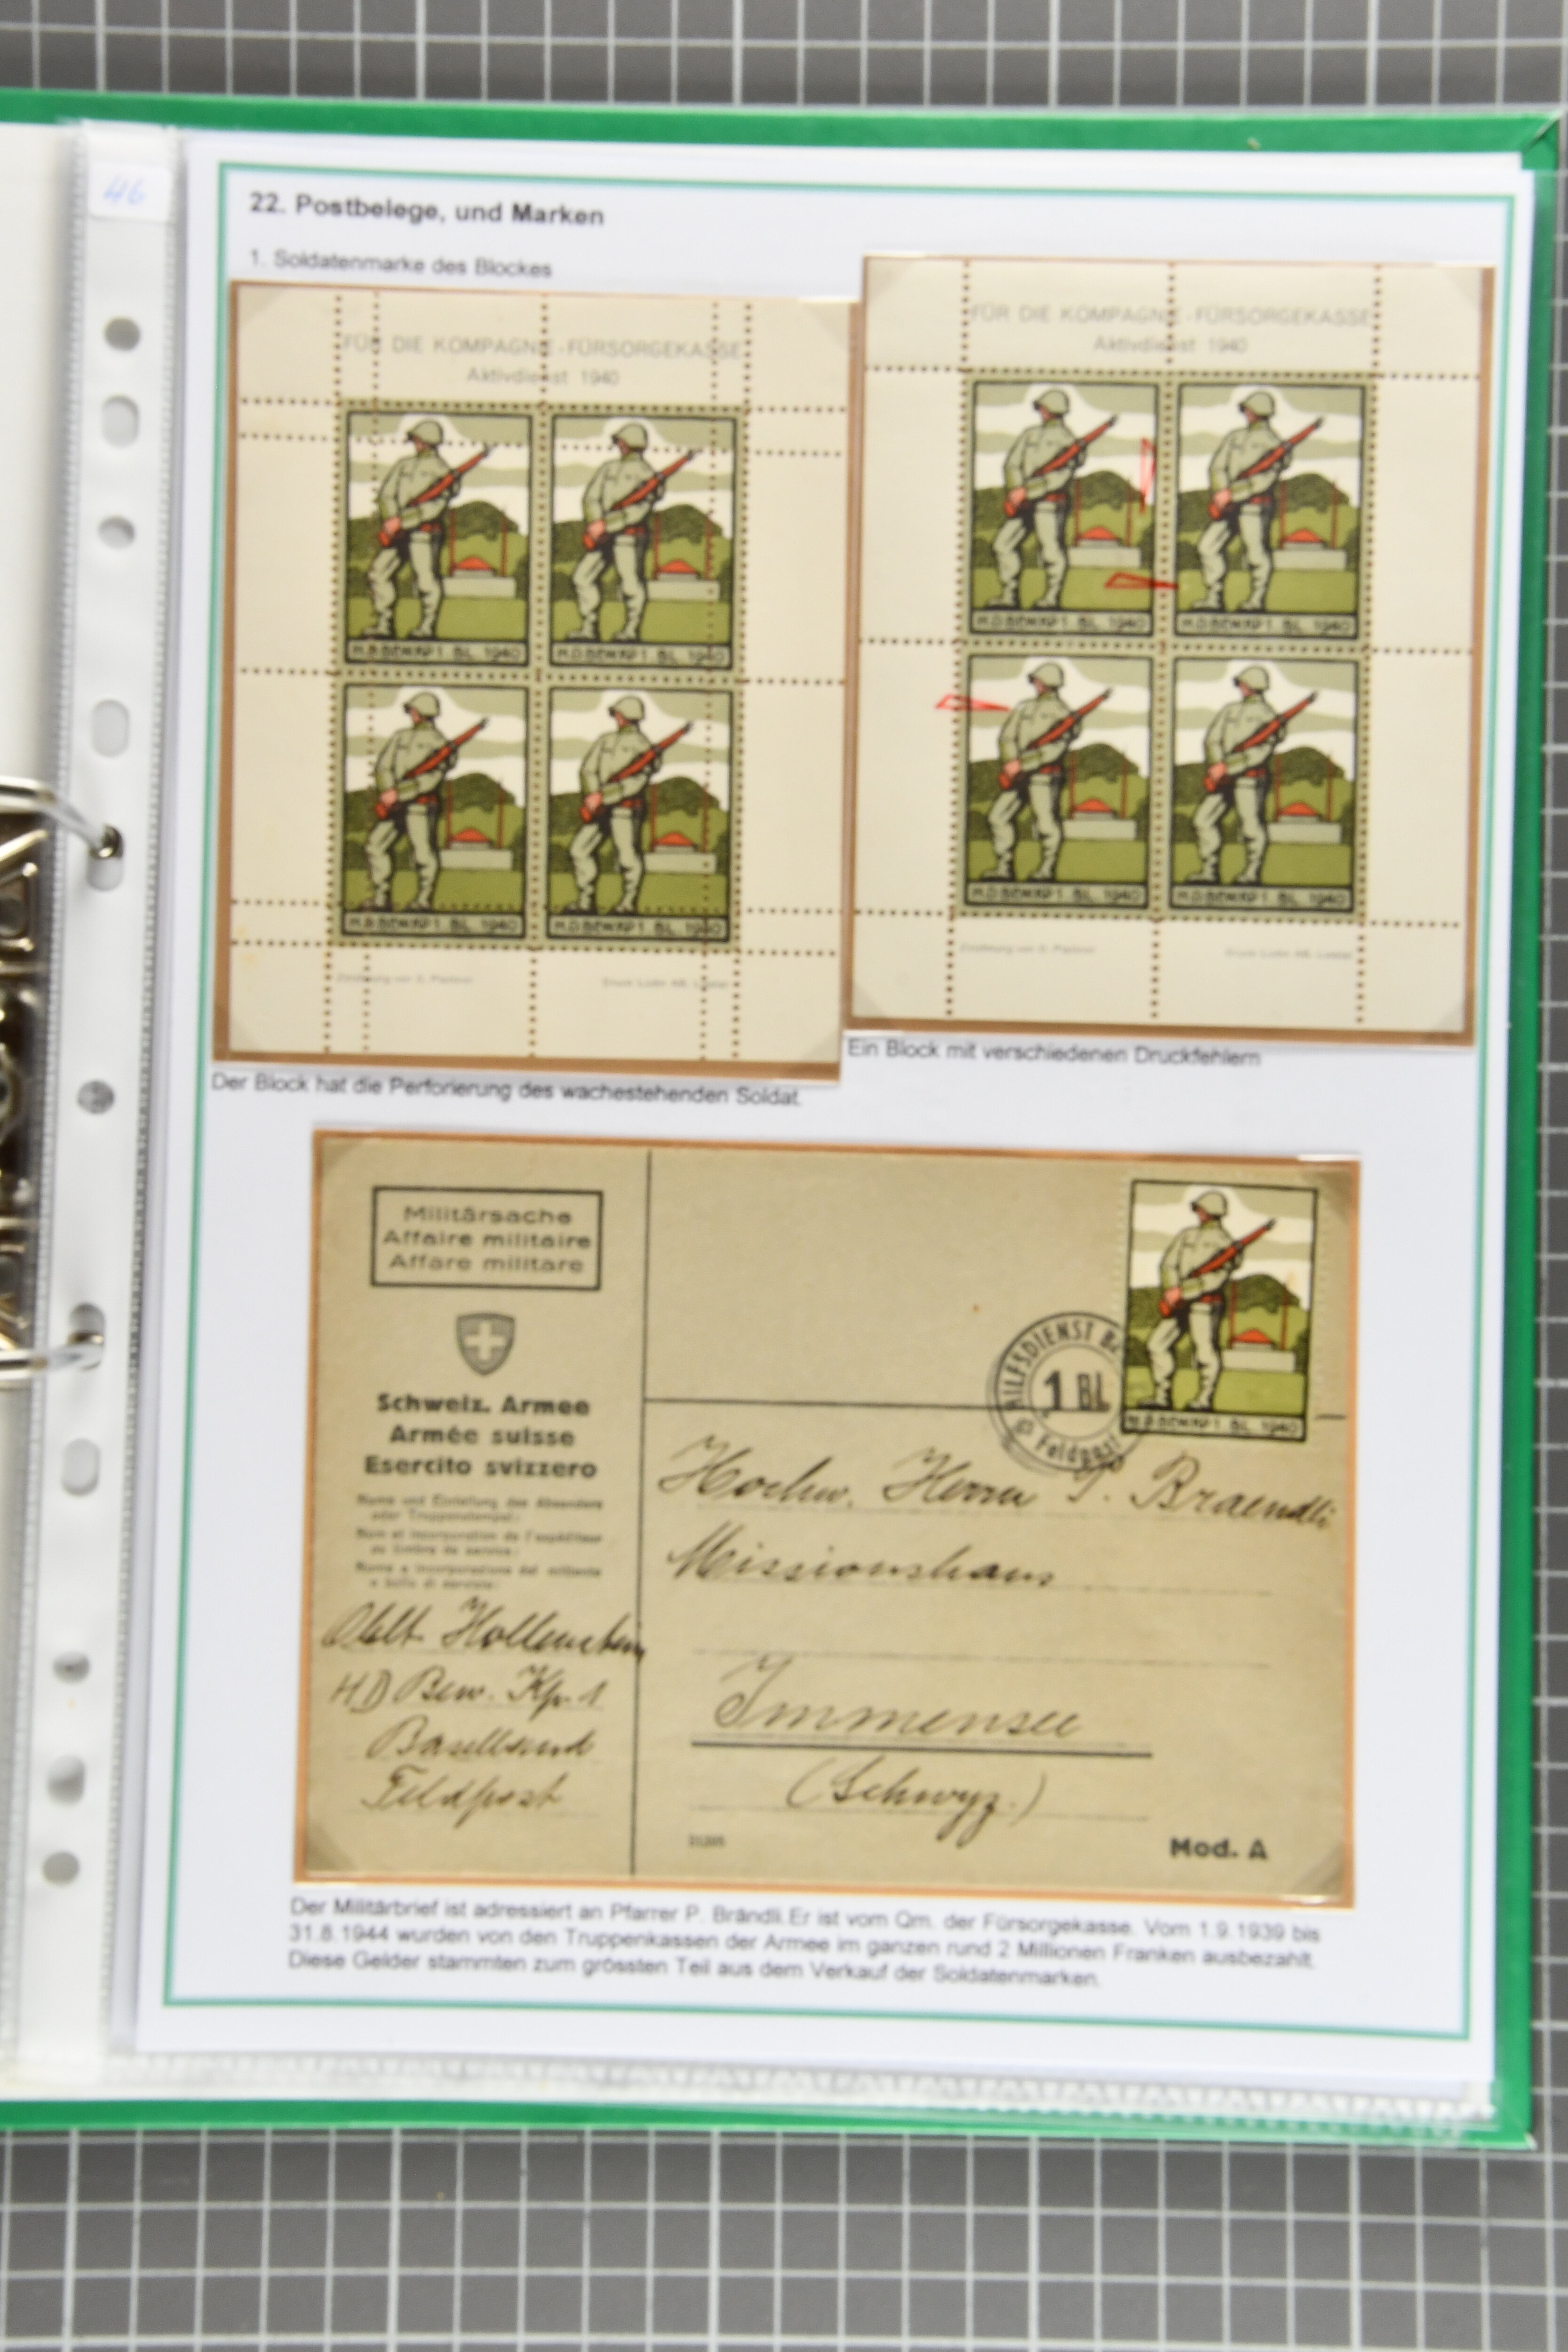 46
22. Postbelege, und Marken
1. Soldatenmarke des Blockes
FÜR DIE KOMPAGNIE-FÜRSORGEKASSE
Aktivdienst 1940
H.D.BEW.KP 1. BL. 1940
H.D.BEW.KP 1. BL. 1940
H.D.BEW.KP 1. BL. 1940
H.D.BEW.KP 1. BL. 1940
Zeichnung von
Druck Lüdin AG. Liestal
Der Block hat die Perforierung des wachestehenden Soldat.
FÜR DIE KOMPAGNIE-FÜRSORGEKASSE
Aktivdienst 1940
H.D.BEW.KP 1. BL. 1940
H.D.BEW.KP 1. BL. 1940
H.D.BEW.KP 1. BL. 1940
H.D.BEW.KP 1. BL. 1940
Zeichnung von
Druck Lüdin AG. Liestal
Ein Block mit verschiedenen Druckfehlern
Militärsache
Affaire militaire
Affare militare
Schweiz. Armee
Armée suisse
Esercito svizzero
Name und Einteilung des Absenders
oder Truppenstempel:
Nom et incorporation de l'expéditeur
ou timbre de service:
Nome e incorporazione del mittente
o bollo di servizio:
Oblt. Hollenstein
HD Bew. Kp. 1
Baselland
Feldpost
HILFSDIENST
1 BL
Feldpost
H.D.BEW.KP 1. BL. 1940
Hochw. Herrn P. Braendli
Missionshaus
Immensee
(Schwyz.)
Mod. A
Der Militärbrief ist adressiert an Pfarrer P. Brändli.Er ist vom Qm. der Fürsorgekasse. Vom 1.9.1939 bis
31.8.1944 wurden von den Truppenkassen der Armee im ganzen rund 2 Millionen Franken ausbezahlt.
Diese Gelder stammten zum grössten Teil aus dem Verkauf der Soldatenmarken.